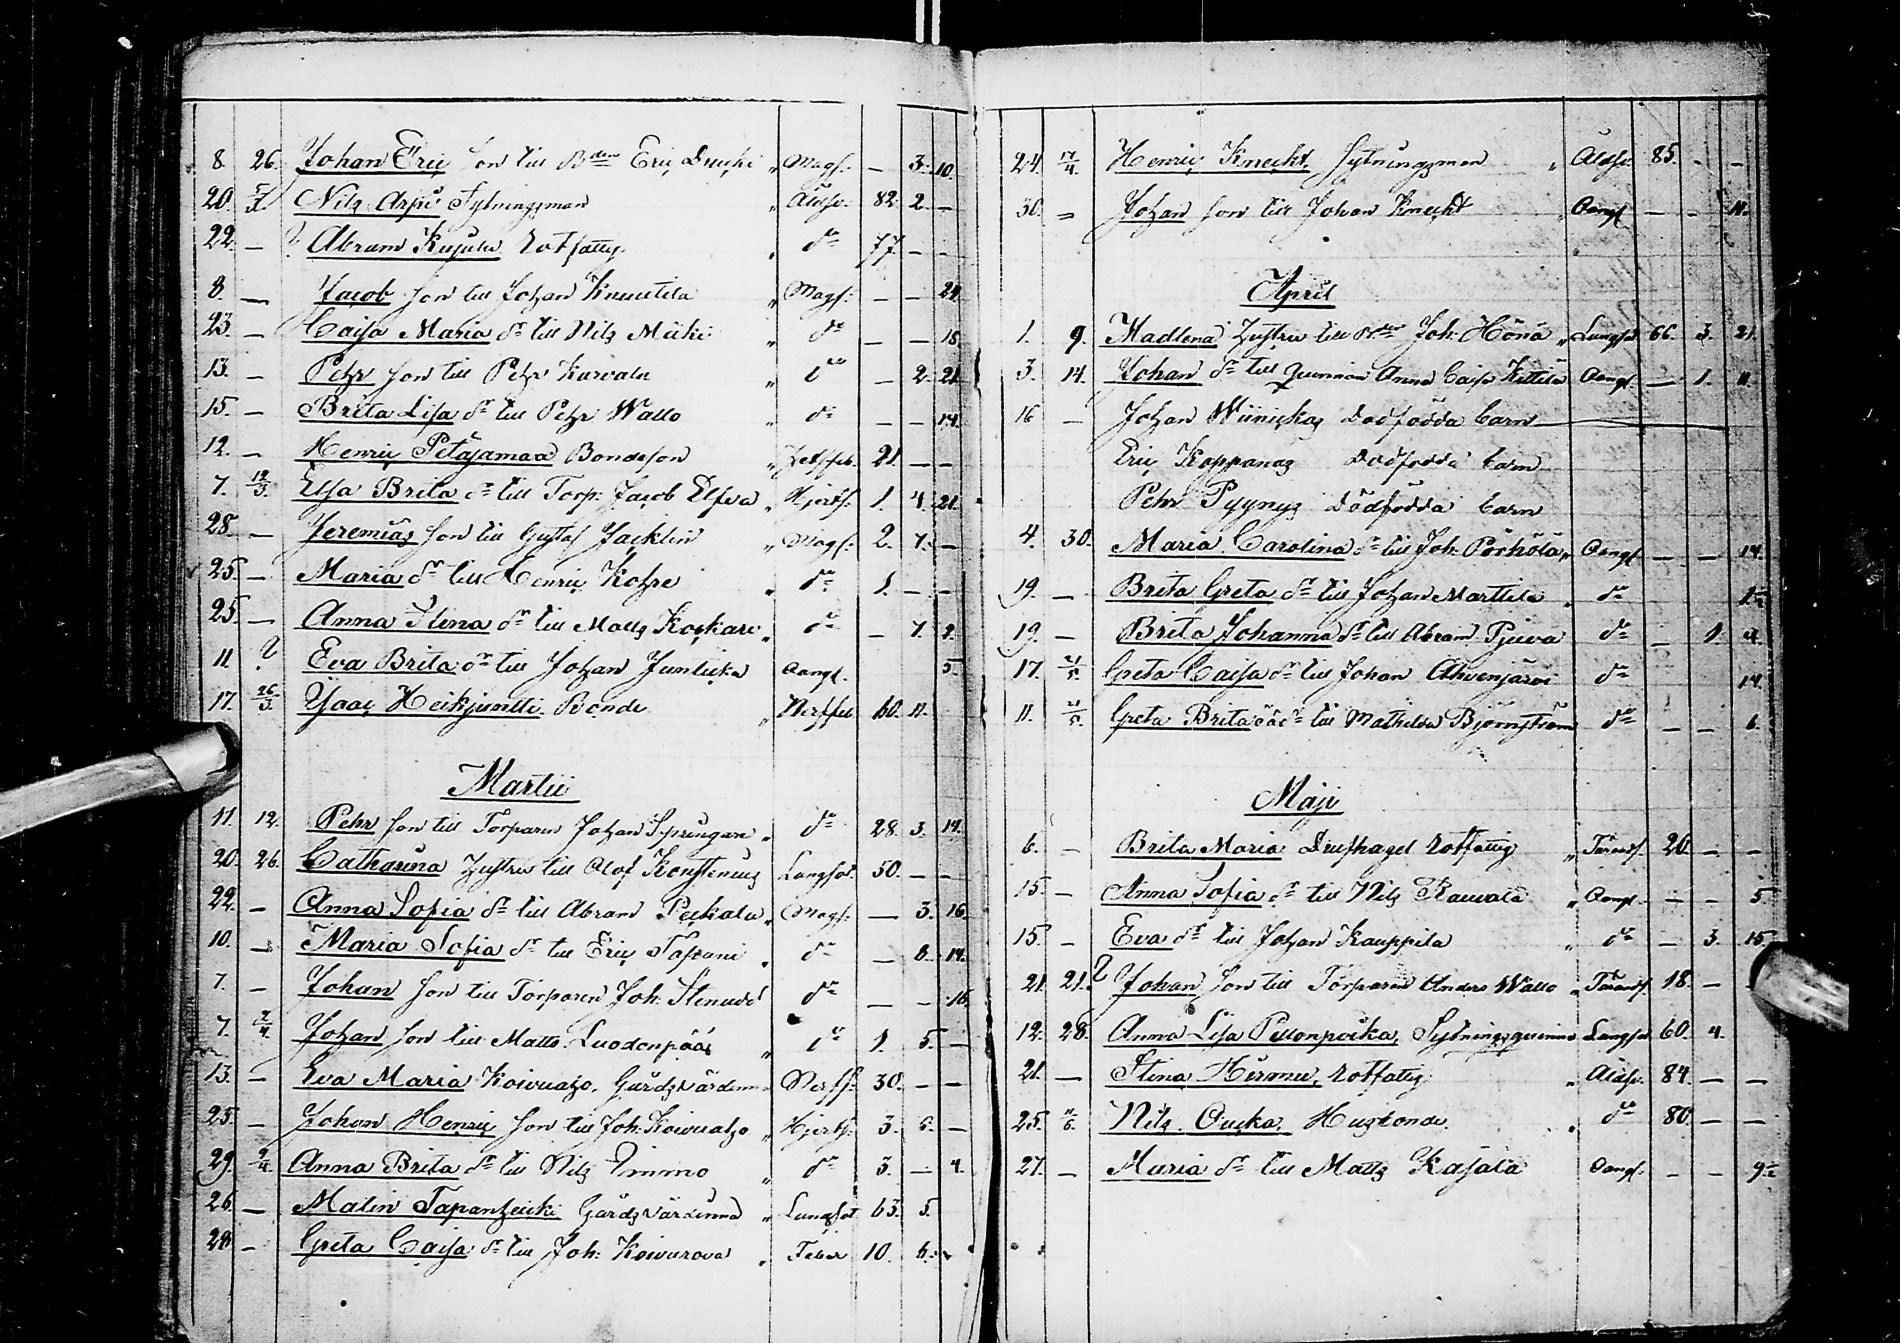 8. 26. Johan Eric son till Bden Eric „ Magf. — 3. 10.
20. 5/3. Nils Arpi Sytningsman „ Åldhr. 82. 2. —
22. — ? Abram Kujala rotfattig „ do 77. — —
8. — Jacob son till Johan „ Magf. — — 24
23. — Caisa Maria dr till Nils „ do — — 18.
13. — Pehr son till Pehr Karvala „ do — 2. 21.
15. — Brita Lisa dr till Pehr Wallo „ do — — 14.
12. — Henric Petäjamaa Bondeson „ 21. — —
7. 12/3. Elsa Brita dr till Torp. Jacob Elfva „ Hjertf. 1. 4. 21.
28. — Jeremias son till Gustaf Jacklin „ Magf. 2. 7. —
25. — Maria dr till Henric „ do 1. — —
25. — Anna Stina dr till Matts Koskari „ do — 7. 9.
11. ? Eva Brita dr till Johan Oangf. 5.
17. 26/3. Isaac Bonde „ 60. 11.
Martii
11. 12. Pehr son till Torparen Johan Springare „ do 28. 3. 14.
20. 26. Catharina Hustru till Olof Lungsot. 50. — —
22. — Anna Sofia dr till Abram Peckala „ Magf. — 3. 16.
10. — Maria Sofia dr till Eric Tapani „ do — 6. 14.
7. — Johan son till Torparen Joh. Stenudd do — — 16.
7. 2/4. Johan son till Matts Luodonpää „ do 1. 5. —
13. — Eva Maria Koivuaho, Gårdsvärdinna Nerff. 30. — —
25. — Johan Henric son till Joh. Koivuaho „ Hjertf. 3. 6. —
29. 2/4. Anna Brita dr till Nils Timmo „ do 3. — 4.
26. — Malin Gårdsvärdinna „ Lungsot 63. 5.
28. — Greta Caisa dr till Joh. Koivurova „ Feber 10. 6.
24. 17/4. Henric Knecht, Sytningsman „ Åldhr. 85. — —
30. — Johan son till Johan Knecht Oangf. — — 11.
April
1. 9. Madlena Hustru till Bden Joh. Hönä „ Lungsot 66. 3. 21.
3. 14. Johan dr till Quinnan Anna Caisa Kittilä Oangf. — 1. 11.
16 — Johan Dödfödda barn
Eric Koppanas Dödfödda barn
Pehr Pyynys Dödfödda barn
4. 30. Maria Carolina dr till Joh. Pörhölä „ Oangf. — — 14.
19. — Brita Greta dr till Johan Marttila „ do
19. — Brita Johanna dr till Abram do — 1. 4.
17. 21/5. Greta Caisa dr till Johan Ahvenjärvi do 14.
11. 21/5. Greta Brita oä dr till Mathilda Björnström do — — 6.
Maji
6. — Brita Maria rotfattig „ Tärands. 20. — —
15. — Anna Sofia dr till Nils Rauvala „ Oangf. — — 5.
15. — Eva dr till Johan Kauppila „ do — 3. 15.
21. 21. ? Johan son till Torparen Anders Wallo „ Tärands. 18. —
12. 28. Anna Lisa Sytningsquinna Lungsot 60. 4.
21. — Stina rotfattig „ Åldhr. 84. — —
25. 11/6. Nils Oucka, Husbonde „ do 80. — —
27. — Maria dr till Matts Kasala Oangf. — — 9½